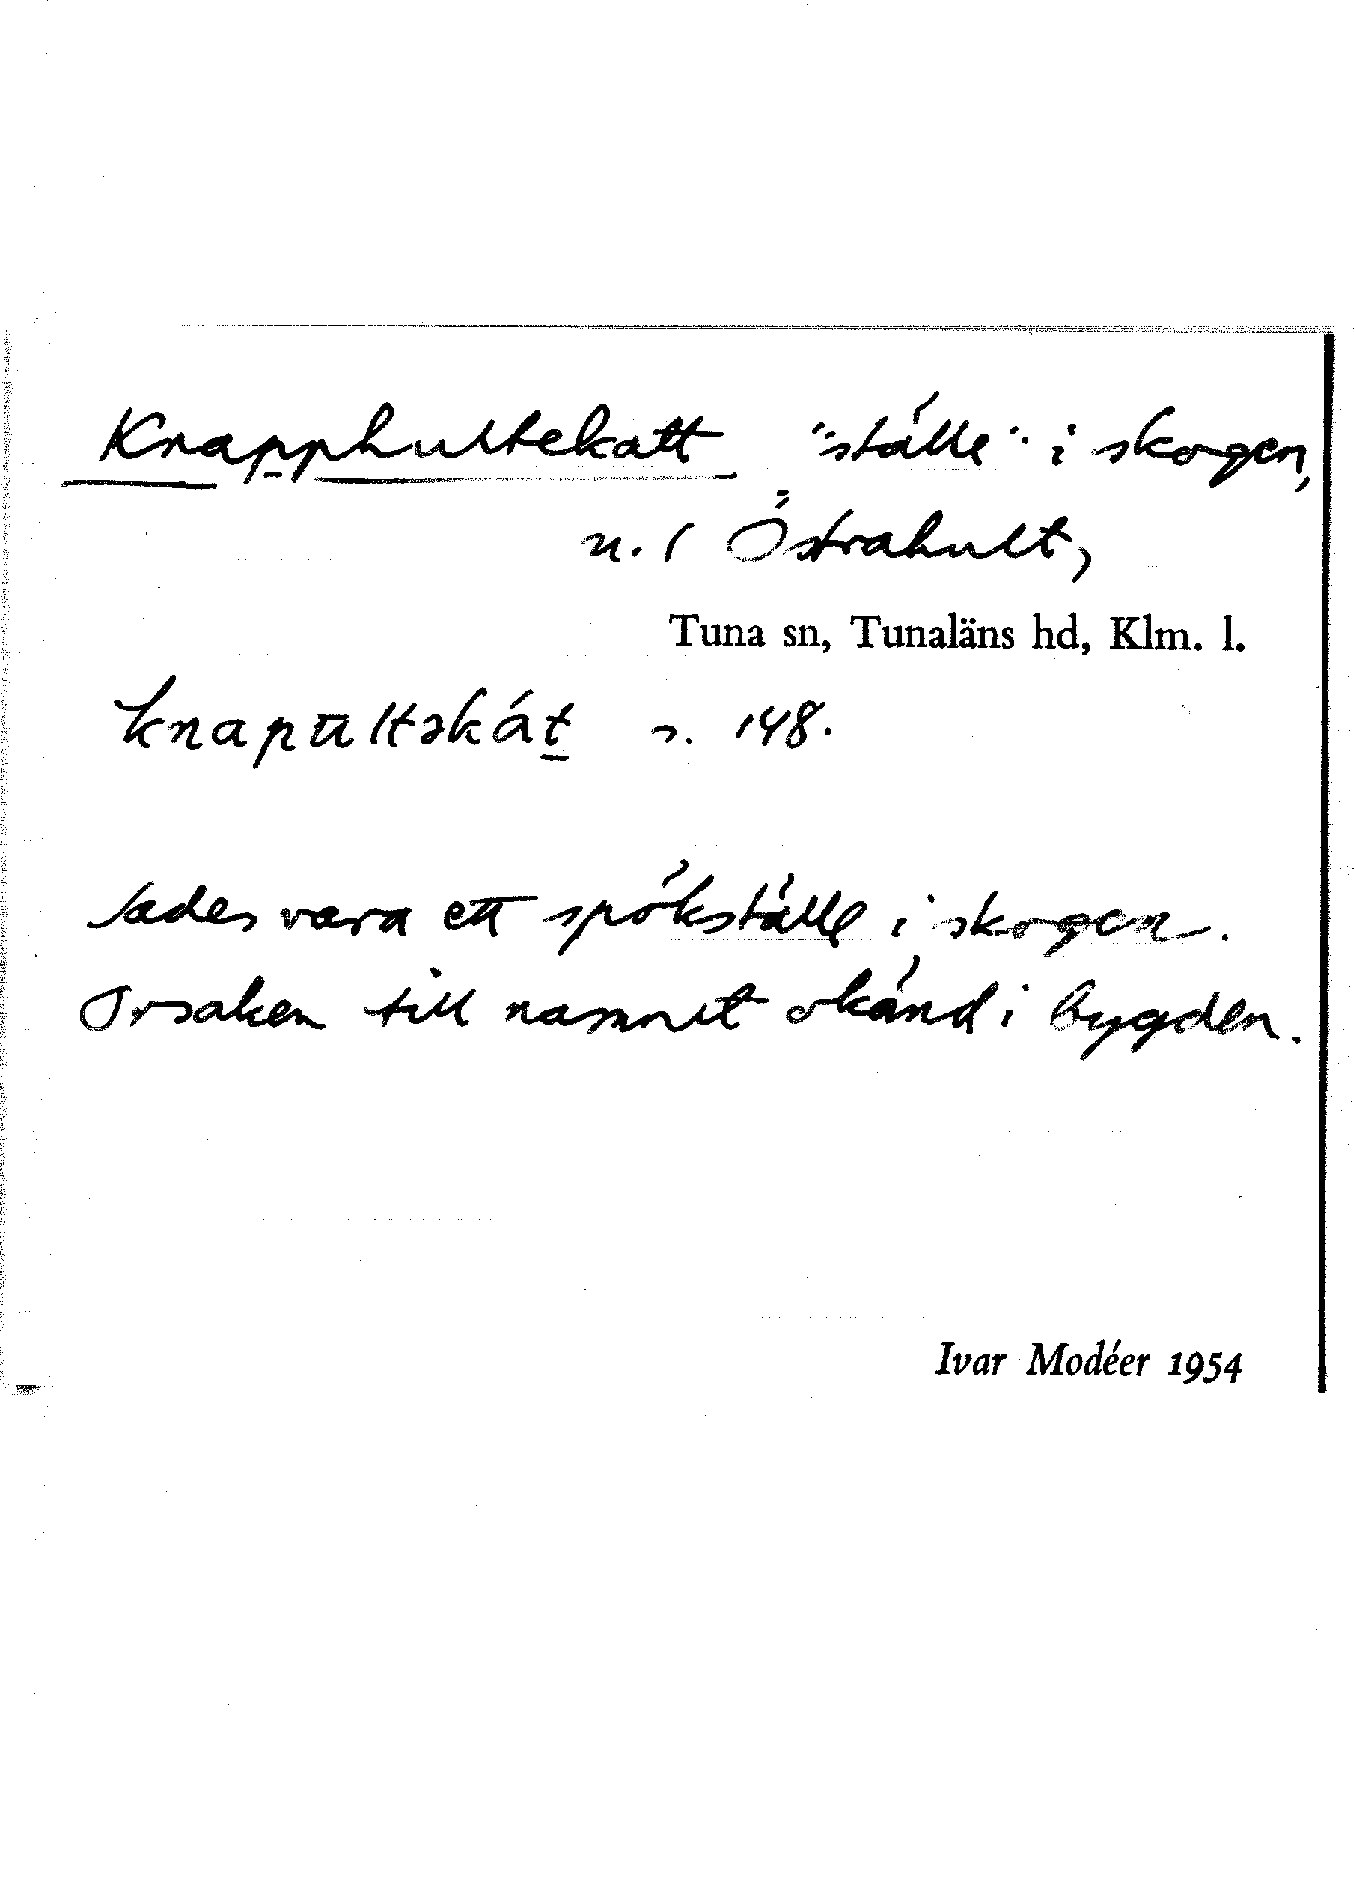 Knapphultekatt "ställe" i skogen,
u. / Östrahult,
Tuna sn, Tunaläns hd, Klm. l.
knapūltəkát s. 148.
Sades vara ett spökställe i skogen.
Orsaken till namnet okänd i bygden.
Ivar Modéer 1954